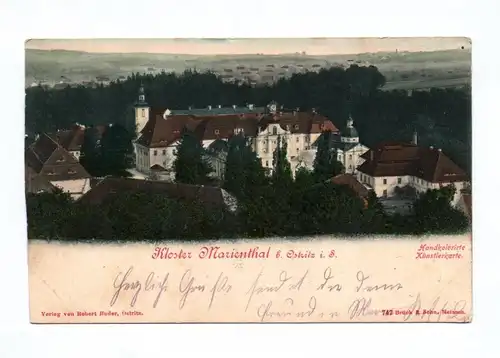 Kloster Marienthal b. Ostritz i. S.
Handkolorirte
Künstlerkarte.
Herzlich Grüße sendet dir deine
Freundin
Verlag von Robert Buder, Ostritz.
747 Brück & Sohn, Meissen.